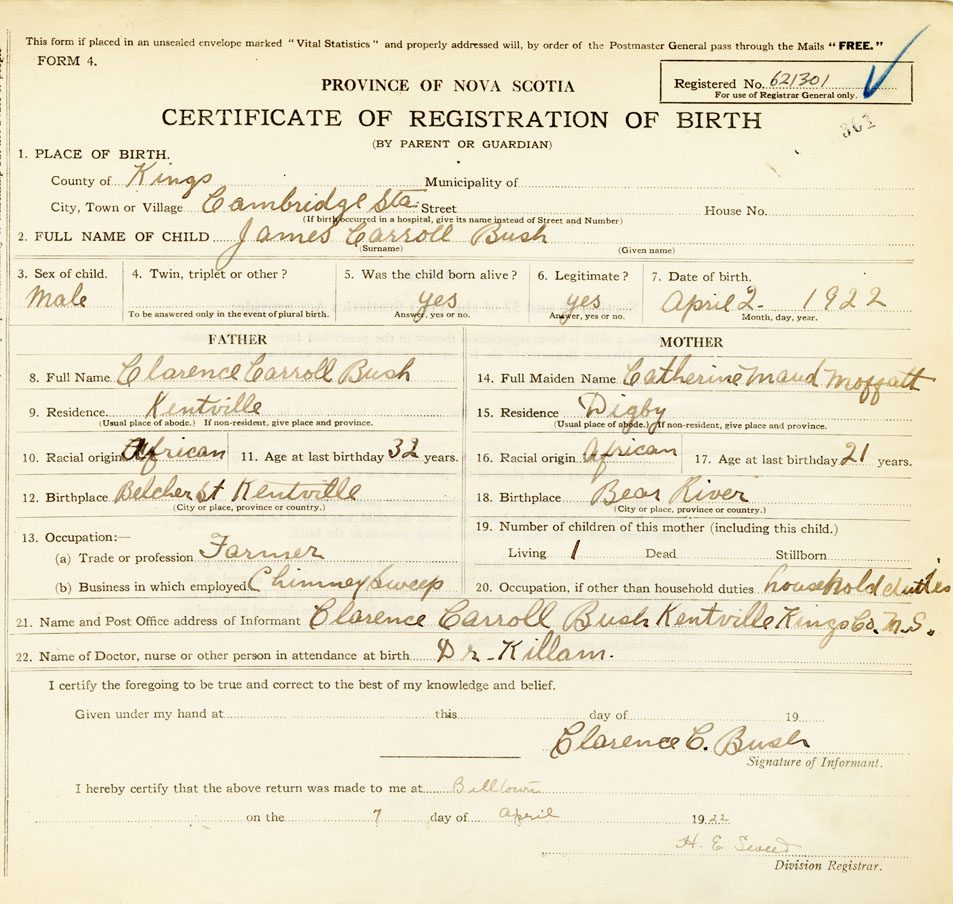 This form if placed in an unsealed envelope marked "Vital Statistics" and properly addressed will, by order of the Postmaster General pass through the Mails "FREE."
FORM 4.
Registered No. 621301
For use of Registrar General only.
PROVINCE OF NOVA SCOTIA
CERTIFICATE OF REGISTRATION OF BIRTH
301
(BY PARENT OR GUARDIAN)
1. PLACE OF BIRTH.
County of Kings Municipality of
City, Town or Village Cambridge Sta. Street House No.
(If birth occurred in a hospital, give its name instead of Street and Number)
2. FULL NAME OF CHILD James Carroll Bush
(Surname) (Given name)
3. Sex of child. 4. Twin, triplet or other? 5. Was the child born alive? 6. Legitimate? 7. Date of birth.
Male yes yes April 2 - 1922
To be answered only in the event of plural birth. Answer, yes or no. Answer, yes or no. Month, day, year.
FATHER
8. Full Name Clarence Carroll Bush
9. Residence Kentville
(Usual place of abode.) If non-resident, give place and province.
10. Racial origin African 11. Age at last birthday 32 years.
12. Birthplace Belcher St Kentville
(City or place, province or country.)
13. Occupation:—
(a) Trade or profession Farmer
(b) Business in which employed Chimney Sweep
MOTHER
14. Full Maiden Name Catherine Maud Moffatt
15. Residence Digby
(Usual place of abode.) If non-resident, give place and province.
16. Racial origin African 17. Age at last birthday 21 years.
18. Birthplace Bear River
(City or place, province or country.)
19. Number of children of this mother (including this child.)
Living 1 Dead Stillborn
20. Occupation, if other than household duties household duties
21. Name and Post Office address of Informant Clarence Carroll Bush Kentville Kings Co. N.S.
22. Name of Doctor, nurse or other person in attendance at birth Dr. Killam.
I certify the foregoing to be true and correct to the best of my knowledge and belief.
Given under my hand at this day of 19
Clarence C. Bush
Signature of Informant.
I hereby certify that the above return was made to me at Billtown
on the 7 day of April 1922
H. E.
Division Registrar.